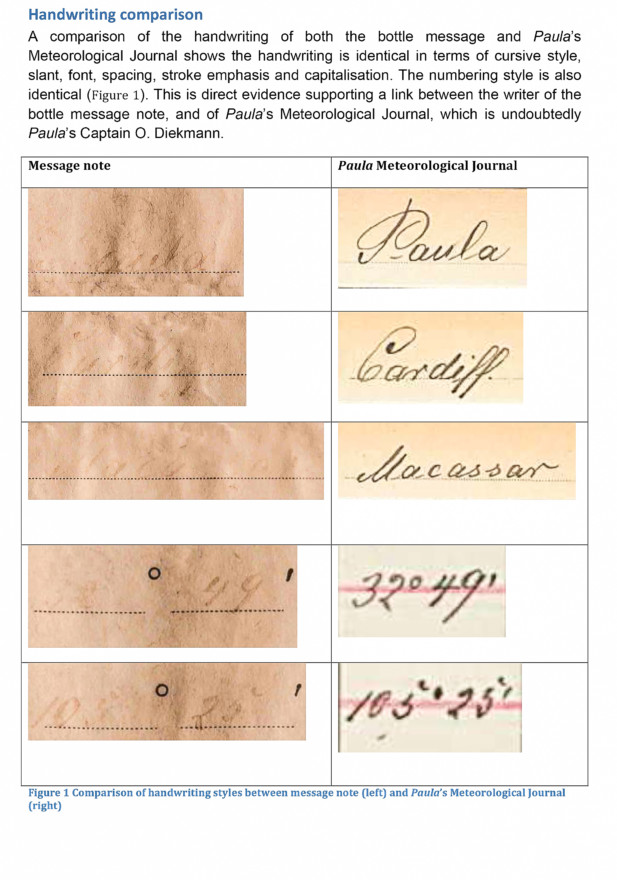 Handwriting comparison
A comparison of the handwriting of both the bottle message and Paula's
Meteorological Journal shows the handwriting is identical in terms of cursive style,
slant, font, spacing, stroke emphasis and capitalisation. The numbering style is also
identical (Figure 1). This is direct evidence supporting a link between the writer of the
bottle message note, and of Paula's Meteorological Journal, which is undoubtedly
Paula's Captain O. Diekmann.
Message note Paula Meteorological Journal
Paula
Cardiff.
Macassar
° 49 ' 32° 49'
105 ° 25 ' 105° 25'
Figure 1 Comparison of handwriting styles between message note (left) and Paula's Meteorological Journal
(right)